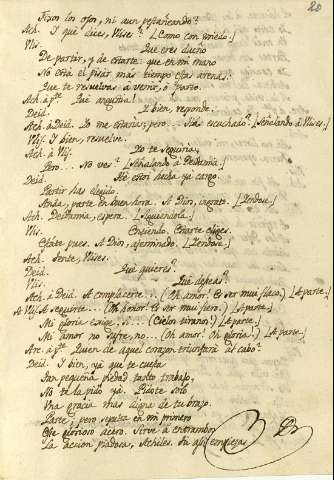 20
Fixos los ojos, ni aun pestañeando?
Ach. Y qué dices, Ulises? [Como con miedo.]
Ulis. Que eres dueño
De partir, y de estarte: que en mi mano
No está el pisar mas tiempo estas arenas.
Que te resuelvas a venir, ó parto.
Ach. á pte. Qué angustia!
Deid. Y bien, responde.
Ach. á Deid. Yo me estaria; pero... Has escuchado? [Señalando á Ulises.]
Ulis. Y bien, resuelve.
Ach. á Ulis. Yo te seguiria;
Pero... No ves? [Señalando á Deidamia.]
Deid. Ya estoy hecha ya cargo.
Partir has elegido.
Anda, parte en buen hora. A Dios, ingrato. [Yendose.]
Ach. Deidamia, espera. [Siguiendola.]
Ulis. Entiendo. Estarte eliges.
Estáte pues. A Dios, afeminado. [Yendose.]
Ach. Tente, Ulises.
Deid. Qué quieres?
Ulis. Qué deseas?
Ach. á Deid. A complacerte... (Oh amor! Es ser muy flaco.) [A parte.]
A Ulis. A seguirte... (Oh honor! Es ser muy fiero.) [A parte.]
Mi gloria exige, si... (Cielos tiranos!) [A parte.]
Mi amor no sufre, no... (Oh amor! Oh gloria!) [A parte.]
Arc. á pte. Quien de aquel corazon triunfará al cabo?
Deid. Y bien, ya que te cuesta
Tan pequeña piedad tanto trabajo,
No te la pido ya. Pidote solo
Una gracia mas digna de tu brazo.
Parte; pero sepulta en mi primero
Ese glorioso acero. Sirve á entrambos
La accion piadosa, Achiles. Tu asi empiezas